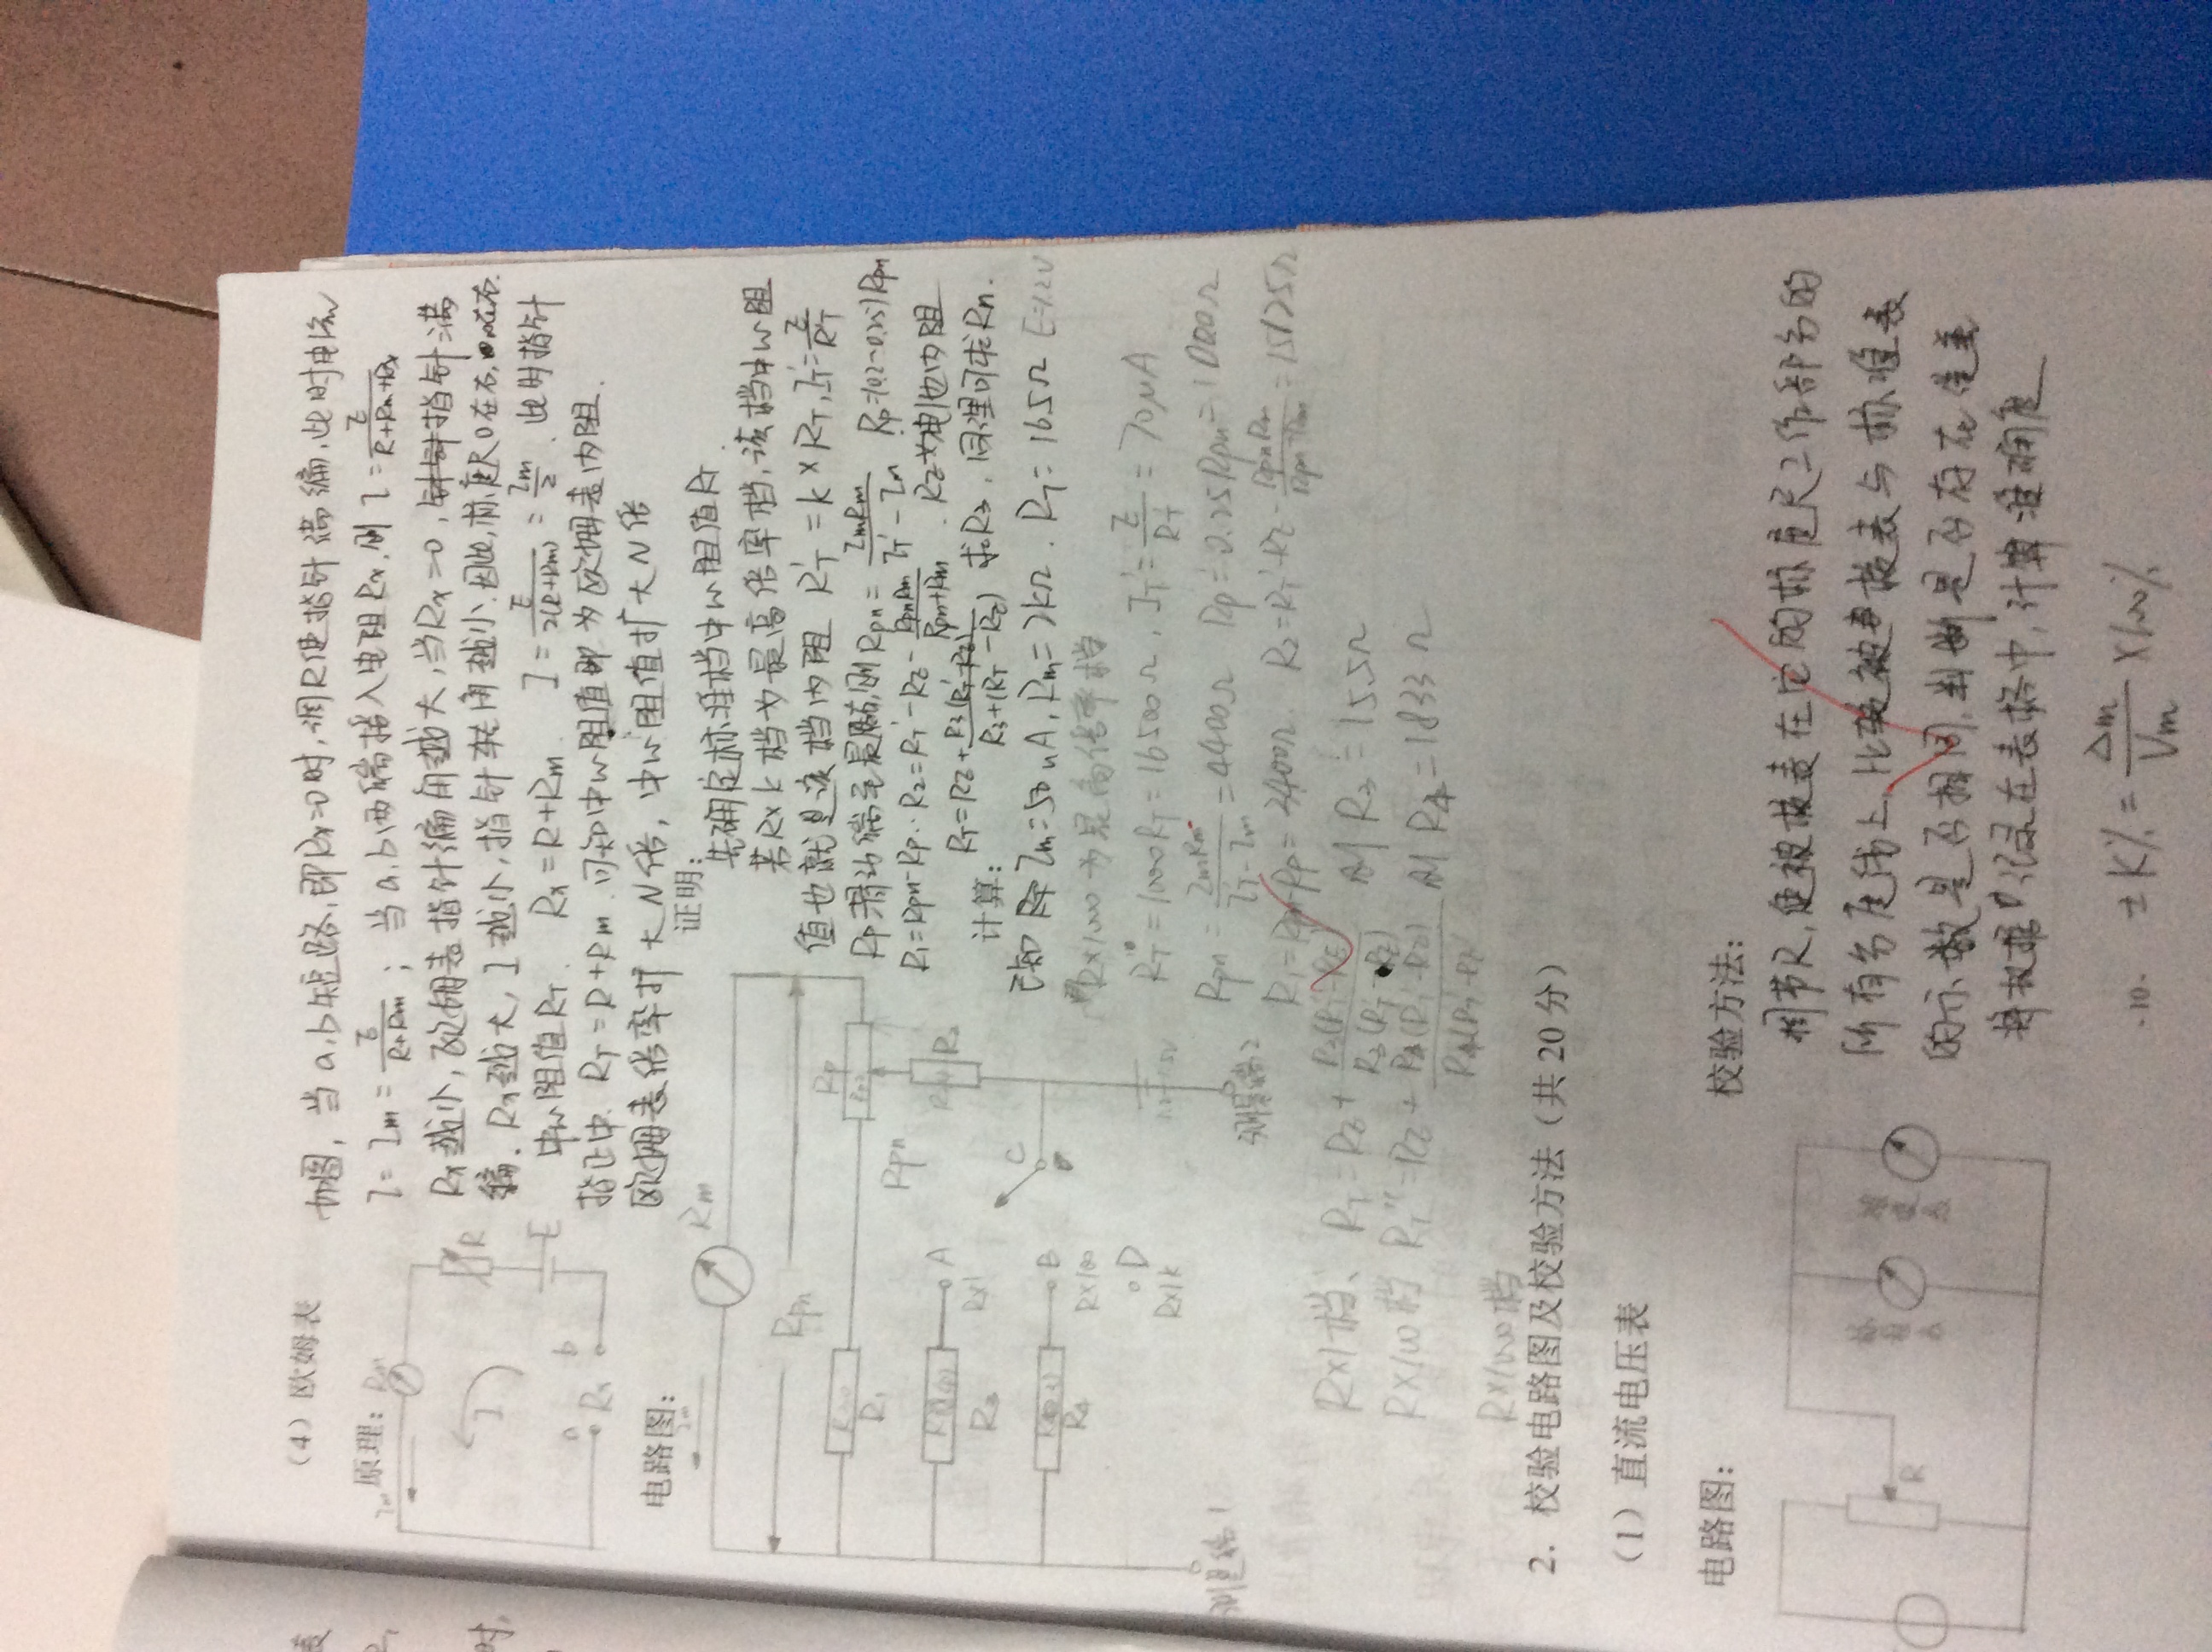 (4) 欧姆表
如图, 当a,b短路,即Rx=0时,调R使指针满偏,此时电流
原理:
I=Im=E/(R+Rm); 当a,b两端接入电阻Rx,则I=E/(R+Rm+Rx)
Rx越小,欧姆表指针偏角越大,当Rx=0,指针满
偏. Rx越大, I越小,指针转角越小.因此,标度尺0在右,∞在右.
中心阻值RT. Rx=R+Rm. I=E/2(R+Rm)=Im/2. 此时指针
指正中. RT=R+Rm. 可知中心阻值即为欧姆表内阻.
欧姆表倍率扩大N倍, 中心阻值扩大N倍
Im Rm
R
I
E
a Rx b
电路图:
Im Rm
Rpn
R1
Rp
Rpn
R2
A
R×1
R3
C
B
R4
R×100
D
R×1k
测量端1
测量端2
证明:
先确定标准档中心阻值RT.
若R×k档为最高倍率档,该档中心阻
值也就是该档内阻 RT'=k×RT,IT'=E/RT'
Rp滑动端至最 则Rpn=ImRm/(IT'-Im) Rp=(0.2~0.25)Rpn
R1=Rpn-Rp.. R2=RT'-Rz-RpnRm/(Rpn+Rm). Rz为电池内阻
RT=Rz+R3(RT'-Rz)/(R3+(RT'-Rz)) 求R3, 同理可求Rn.
计算:
已知 Im=50uA, Rm=2kΩ. RT=16.5Ω E=1.2V
R×1000为最高倍率档
RT'=1000RT=16500Ω, IT'=E/RT'=70μA
Rpn=ImRm/(IT'-Im)=4400Ω Rp=0.25Rpn=1000Ω
R1=Rpn-Rp=3400Ω. R2=RT'-Rz-RpnRm/(Rpn+Rm)=15125Ω
R×1档: RT=Rz+R3(RT'-Rz)/R3(RT'-Rz) 则R3=15.5Ω
R×100档 RT''=Rz+R4(RT'-Rz)/R4(RT'-Rz 则R4=1833Ω
R×1000档
2. 校验电路图及校验方法(共20分)
(1) 直流电压表
电路图:
校验方法:
R
调节R,使被校表在它的标度尺工作部分的
所有分度线上,比较被校表与标准表
的示数是否相同,判断是否存在误差
将数据记录在表格中,计算准确度
±K%=Δm/Vm×100%
·10·